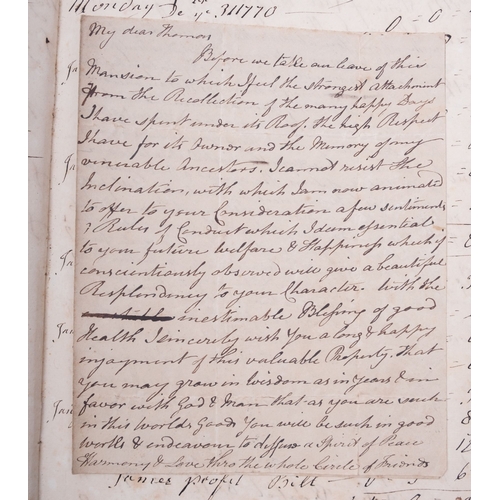 Monday De ye 31 1770
0 = 0
My dear Thomas
Before we take an leave of this
Mansion to which I feel the strongest Attachment
from the Recollection of the many happy Days
I have spent under its Roof, the high Respect
I have for its Owner and the Memory of my
venerable Ancestors. I cannot resist the
Inclination, with which I am now animated
to offer to your Consideration a few sentiments
& Rules of Conduct which I deem essential
to your future Welfare & Happiness which if
conscientiously observed will give a beautiful
Resplendency to your Character. With the
inestimable Blessing of good
Health I sincerely wish You a long & happy
injoyment of this valuable Property. That
you may grow in Wisdom as in Years & in
favor with God & Man that as you are rich
in this Worlds Goods You will be rich in good
works & endeavour to diffuse a Spirit of Peace
Harmony & Love thro the whole Circle of Friends
James Profit Bill